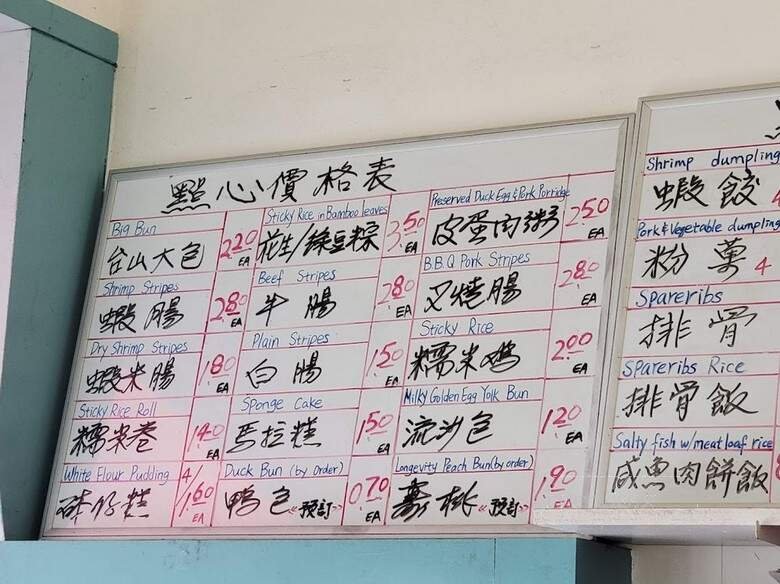 點心價格表
Big Bun
台山大包 2.20 EA
Sticky Rice in Bamboo leaves
花生/綠豆粽 3.50 EA
Preserved Duck Egg & Pork Porridge
皮蛋肉粥 2.50
Shrimp Stripes
蝦腸 2.80 EA
Beef Stripes
牛腸 2.80 EA
B.B.Q Pork Stripes
叉燒腸 2.80 EA
Dry Shrimp Stripes
蝦米腸 1.80 EA
Plain Stripes
白腸 1.50 EA
Sticky Rice
糯米鸡 2.00 EA
Sticky Rice Roll
糯米卷 1.40 EA
Sponge Cake
馬拉糕 1.50 EA
Milky Golden Egg Yolk Bun
流沙包 1.20 EA
White Flour Pudding
砵仔糕 4/1.60 EA
Duck Bun (by order)
鴨包《預訂》 0.70 EA
Longevity Peach Bun (by order)
壽桃《預訂》 1.90 EA
Shrimp dumpling
蝦餃
Pork & Vegetable dumpling
粉菓 4
Spareribs
排骨
Spareribs Rice
排骨飯
Salty fish w/ meat loaf rice
咸魚肉餅飯